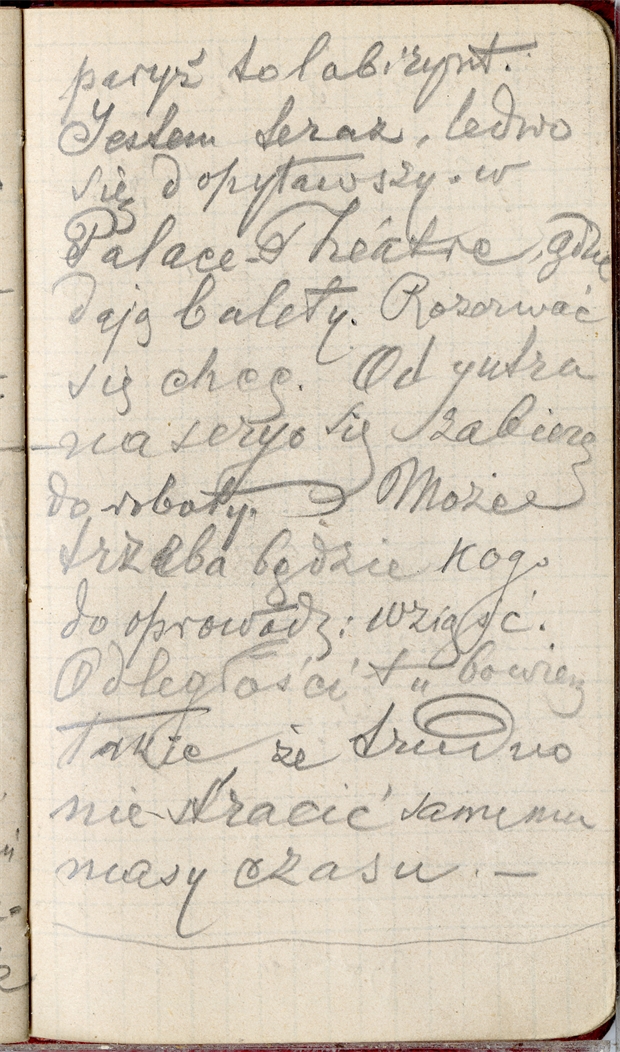 paryż to labirynt.
Jestem teraz, ledwo
się dopytawszy. w
Palace-Théâtre, gdzie
dają balety. Rozerwać
się chcę. Od yutra
na seryo się zabiorę
do roboty. Może
trzeba będzie kogo
do oprowadz: wziąść.
Odległości tu bowiem
takie że trudno
nie stracić samemu
masy czasu. —